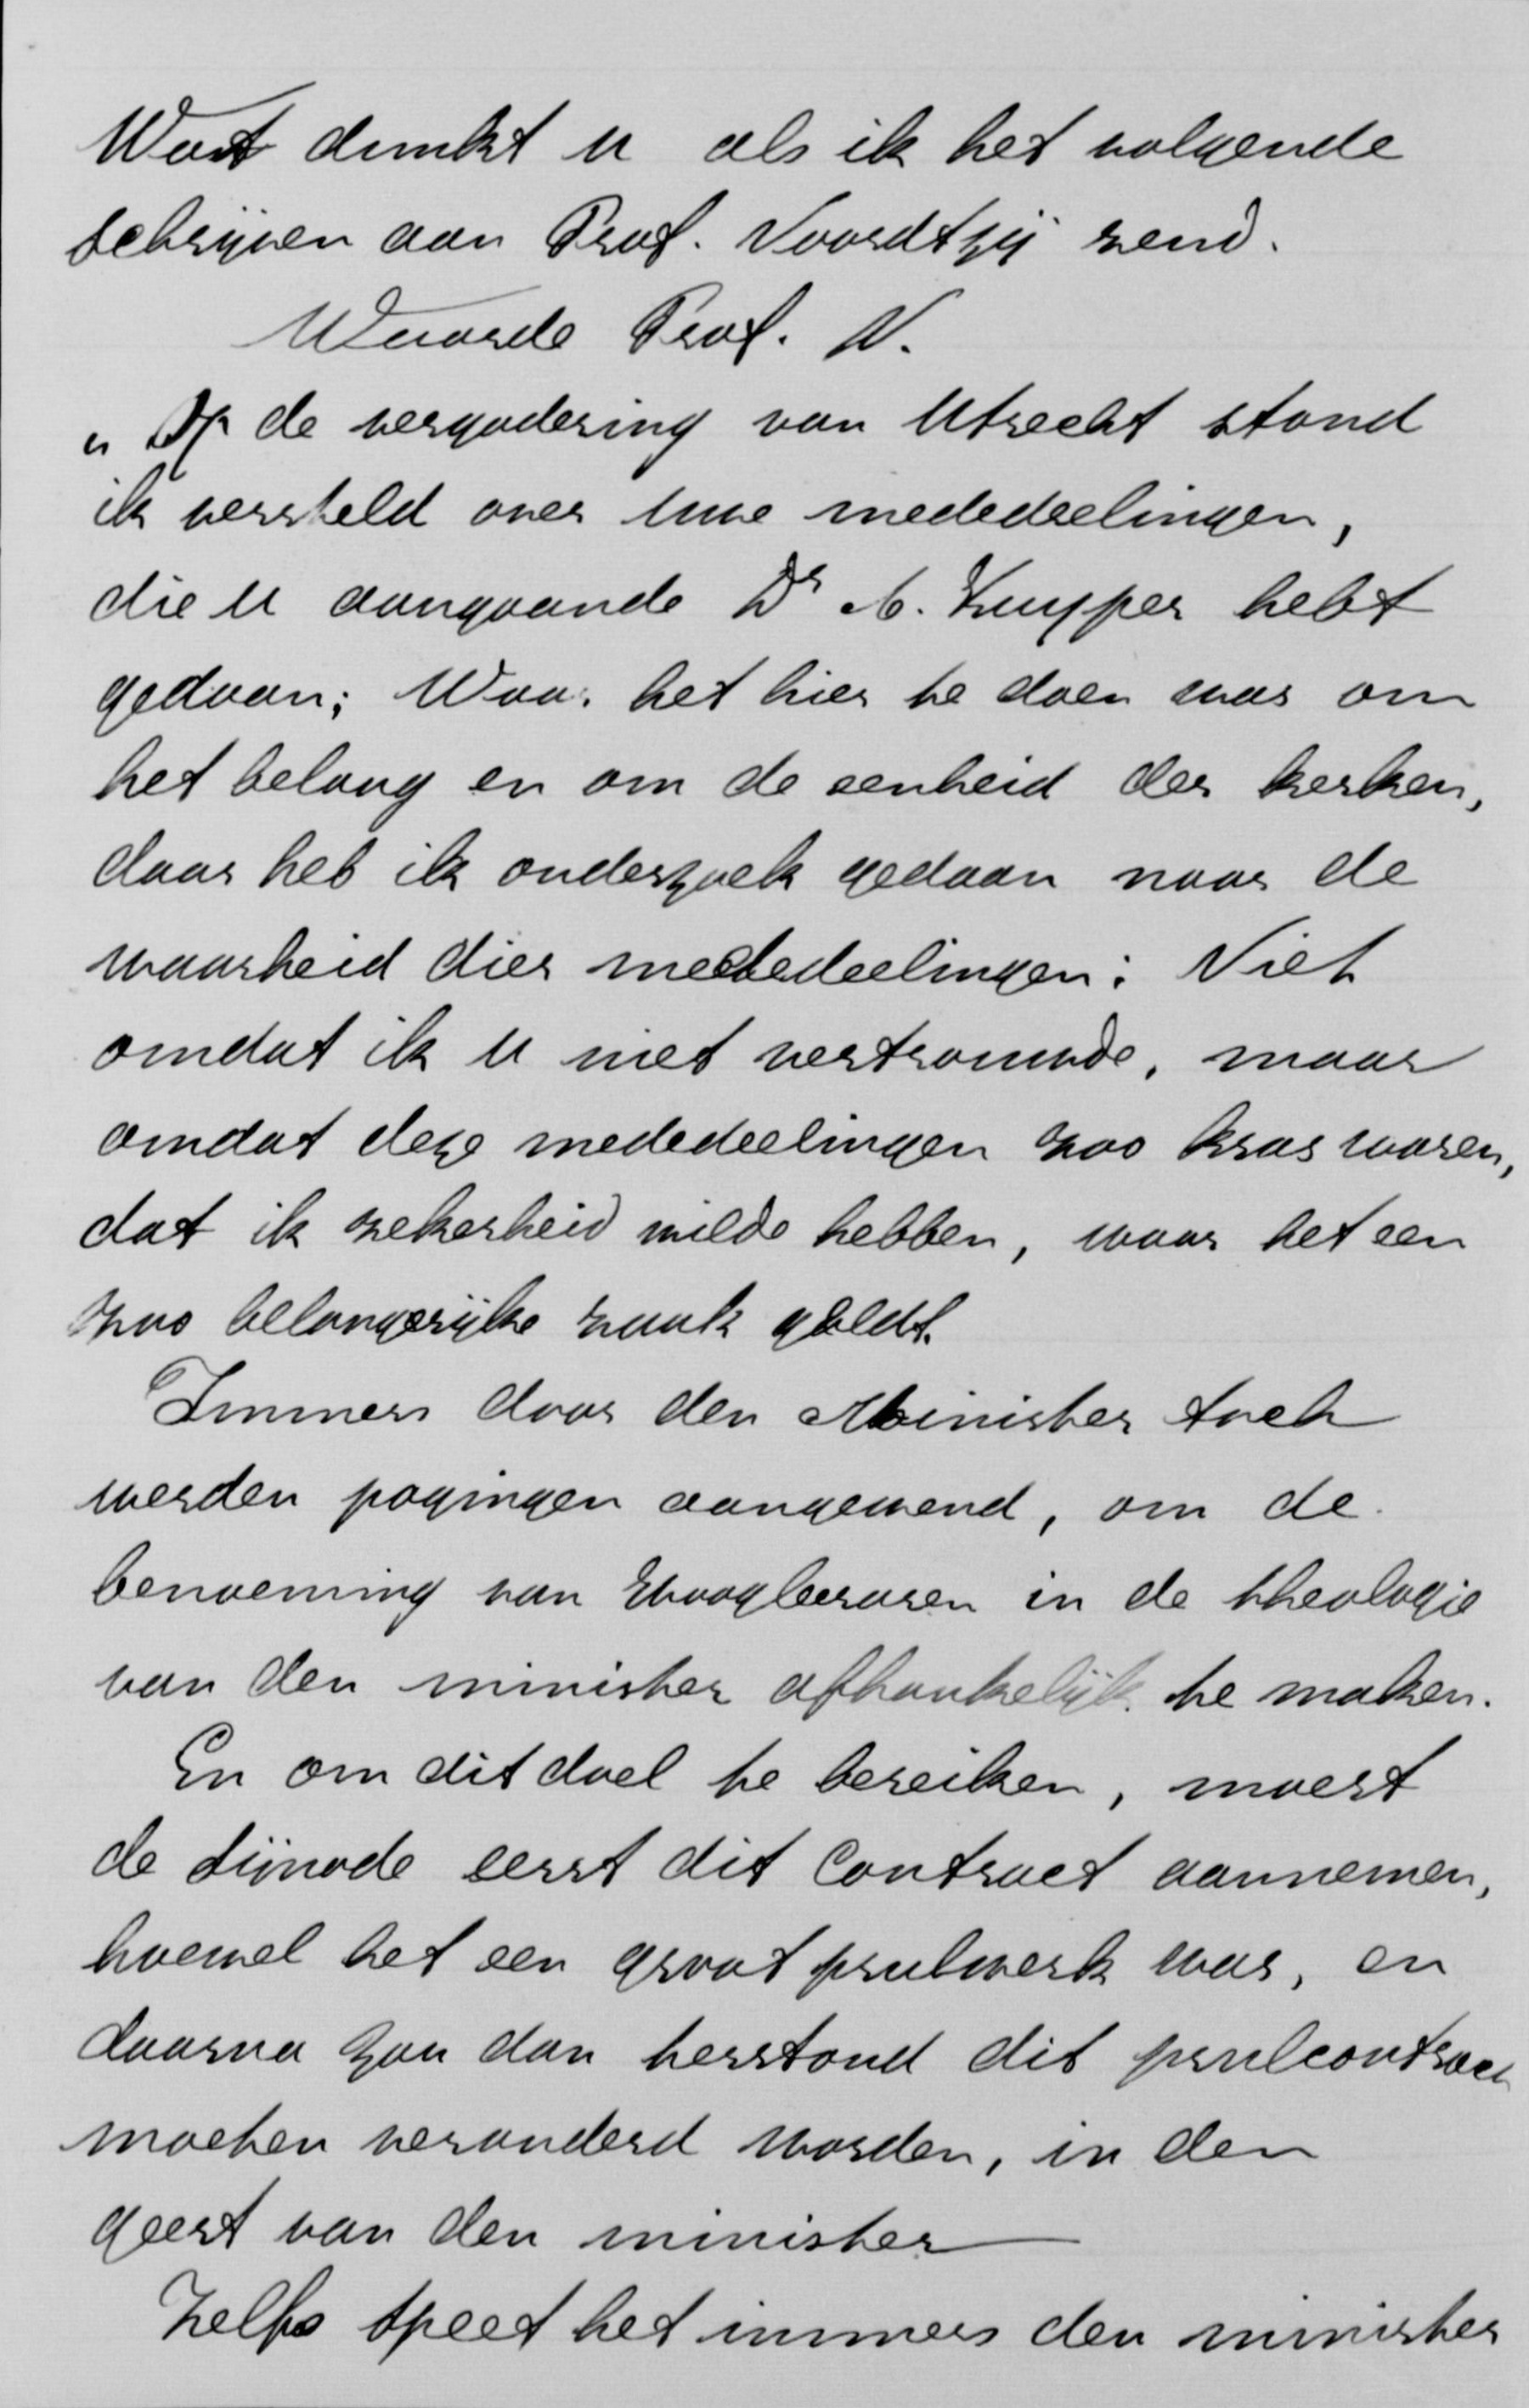 Wat dunkt u als ik het volgende
schrijven aan Prof. Noordtzij zend.
Waarde Prof. N.
„Op de vergadering van Utrecht stond
ik versteld over uwe mededeelingen,
die u aangaande Dr A. Kuyper hebt
gedaan; Waar het hier te doen was om
het belang en om de eenheid der kerken,
daar heb ik onderzoek gedaan naar de
waarheid dier mededeelingen; Niet
omdat ik u niet vertrouwde, maar
omdat deze mededeelingen zoo kras waren,
dat ik zekerheid wilde hebben, waar het een
zoo belangerijke zaak geldt.
Immers door den Minister toch
werden pogingen aangewend, om de
benoeming van Hoogleeraren in de theologie
van den minister afhankelijk te maken.
En om dit doel te bereiken, moest
de sijnode eerst dit Contract aannemen,
hoewel het een groot prulwerk was, en
daarna zou dan terstond dit prulcontract
moeten veranderd worden, in den
geest van den minister
Zelfs speet het immers den minister